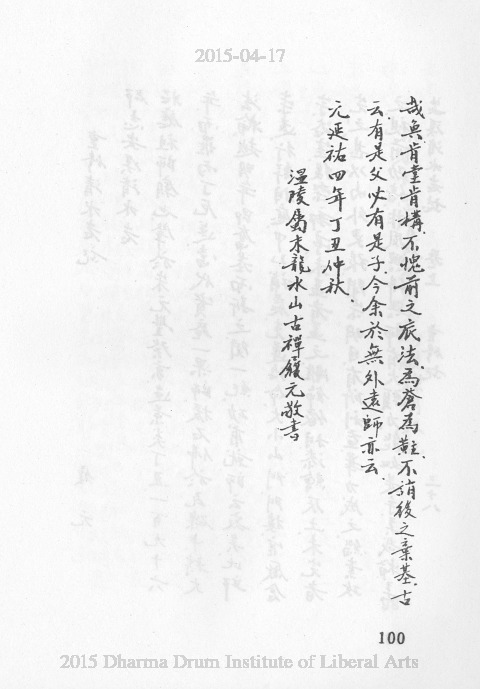 2015-04-17
哉與肯堂肯構不愧前之底法為蒼為黈不誚後之棄基古
云有是父必有是子今余於無外遠師亦云
元延祐四年丁丑仲秋
溫陵屬木龍水山古禪鏝元敬書
100
2015 Dharma Drum Institute of Liberal Arts